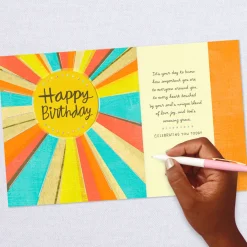 Happy
Birthday
It's your day to know
how important you are
to everyone around you,
to every heart touched
by your soul's unique blend
of love, joy, and God's
amazing grace.
CELEBRATING YOU TODAY